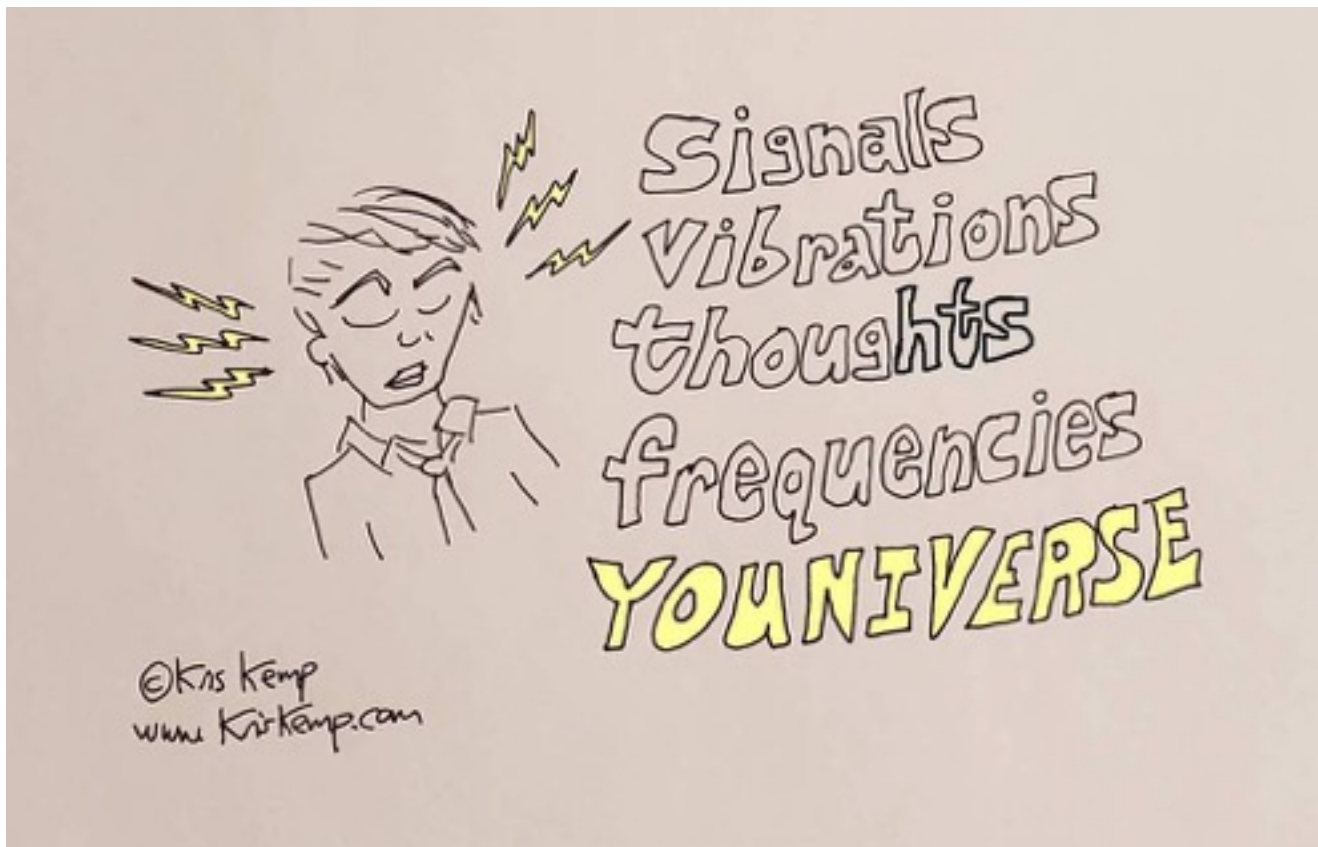 Signals
vibrations
thoughts
frequencies
YOUNIVERSE
©Kris Kemp
www.KrisKemp.com